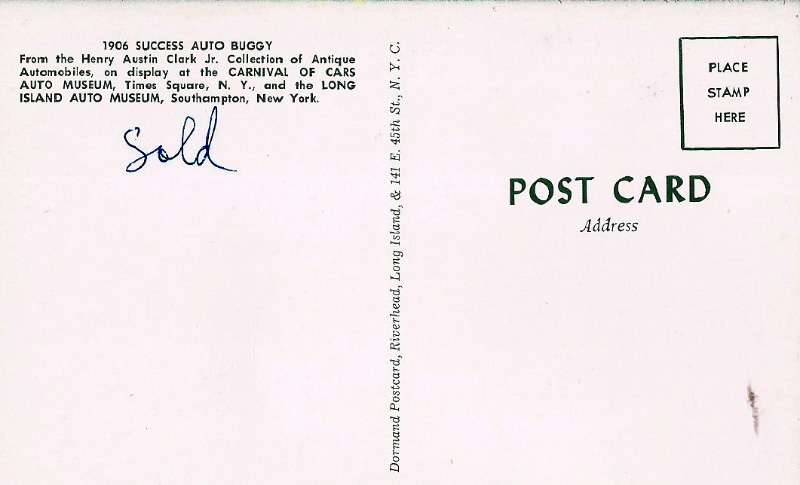 1906 SUCCESS AUTO BUGGY
From the Henry Austin Clark Jr. Collection of Antique
Automobiles, on display at the CARNIVAL OF CARS
AUTO MUSEUM, Times Square, N. Y., and the LONG
ISLAND AUTO MUSEUM, Southampton, New York.
Sold
Dormand Postcard, Riverhead, Long Island, & 141 E. 45th St., N. Y. C.
PLACE
STAMP
HERE
POST CARD
Address